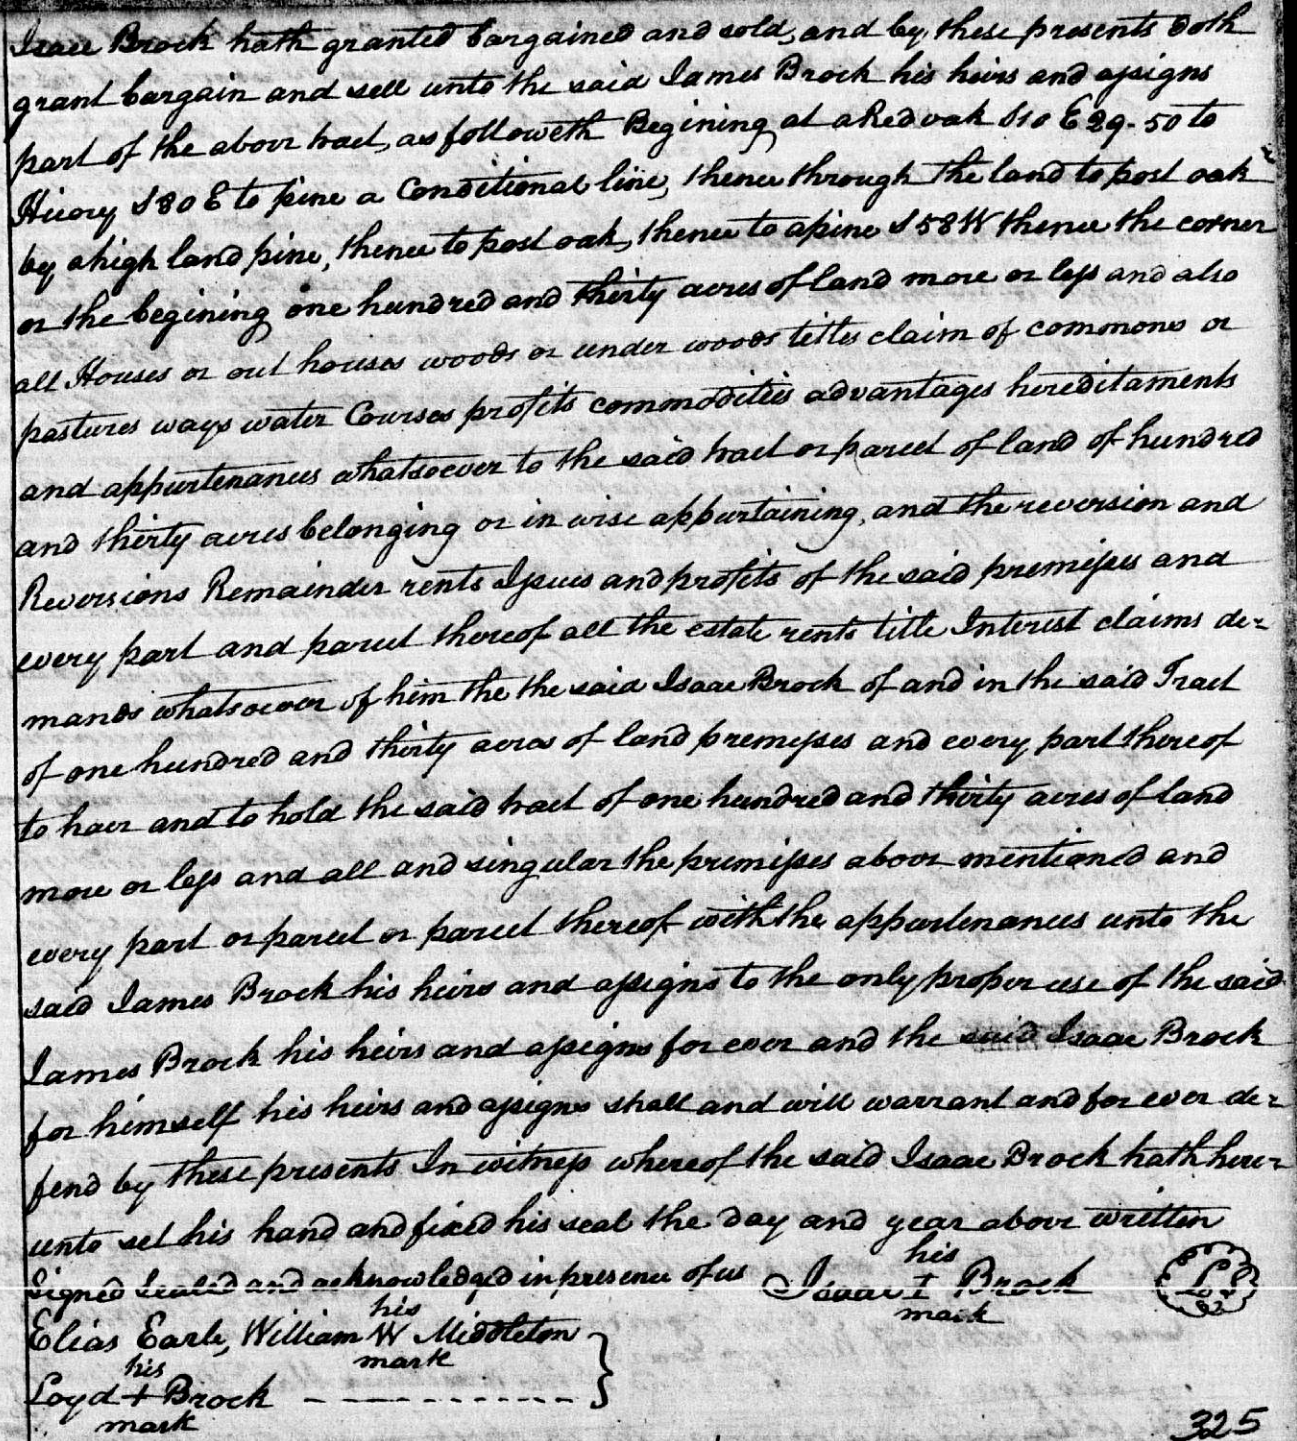 Isaac Brock hath granted bargained and sold, and by these presents doth
grant bargain and sell unto the said James Brock his heirs and assigns
part of the above tract, as followeth Begining at a Red oak S10 E 29-50 to
Hicory S80 E to pine a Conditional line, thence through the land to post oak
by a high land pine, thence to post oak, thence to a pine S58W thence the corner
or the begining one hundred and thirty acres of land more or less and also
all Houses or out houses woods or under woods titles claim of commons or
pastures ways water Courses profits commodities advantages hereditaments
and appurtenances whatsoever to the said tract or parcel of land of hundred
and thirty acres belonging or in wise appurtaining, and the reversion and
Reversions Remainder rents Issues and profits of the said premises and
every part and parcel thereof all the estate rents title Interest claims de=
mands whatsoever of him the the said Isaac Brock of and in the said Tract
of one hundred and thirty acres of land premesses and every part thereof
to have and to hold the said tract of one hundred and thirty acres of land
more or less and all and singular the premisses above mentioned and
every part or parcel or parcel thereof with the appurtenances unto the
said James Brock his heirs and assigns to the only proper use of the said
James Brock his heirs and assigns for ever and the said Isaac Brock
for himself his heirs and assigns shall and will warrant and for ever de=
fend by these presents In witness whereof the said Isaac Brock hath here=
unto set his hand and fixed his seal the day and year above written
Signed Sealed and acknowledged in presence of us Isaac his I mark Brock LS
Elias Earle, William his W mark Middleton
Loyd his + mark Brock
325